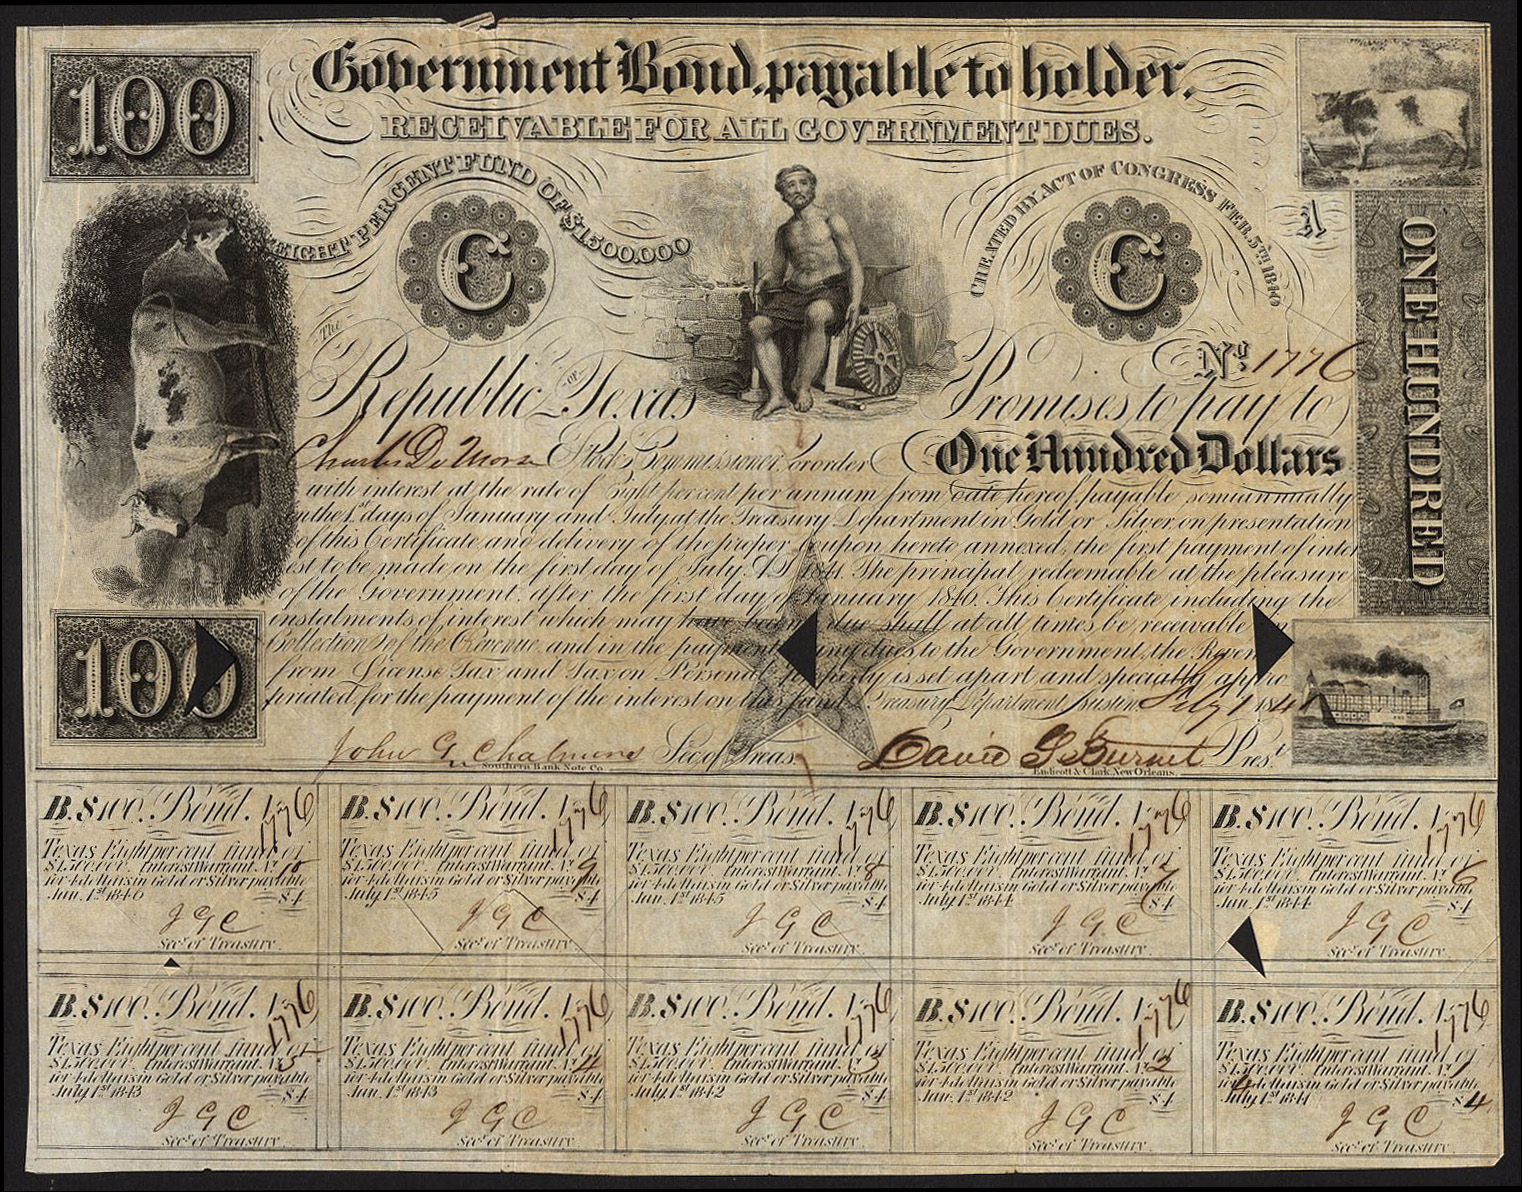 100
Government Bond, payable to holder.
RECEIVABLE FOR ALL GOVERNMENT DUES.
EIGHT PER CENT FUND OF $1.500.000
C
CREATED BY ACT OF CONGRESS FEB. 5TH 1840
C
A
ONE HUNDRED
No. 1776
The Republic OF Texas Promises to pay to
Charles De Morse Stock Commissioner, or order One Hundred Dollars
with interest at the rate of Eight per cent per annum from date hereof, payable semiannually
on the 1st days of January and July, at the Treasury Department in Gold or Silver, on presentation
of this Certificate, and delivery of the proper Coupon hereto annexed, the first payment of inter
est to be made on the first day of July A.D. 1841. The principal redeemable at the pleasure
of the Government, after the first day of January 1846. This Certificate including the
instalments of interest which may have become due shall at all times, be receivable in
Collection of the Revenue, and in the payment of dues to the Government, the Reven
from License Tax and Tax on Personal Property is set apart and specially appro
priated for the payment of the interest on this fund. Treasury Department, Austin, July 1 1841
100
John G. Chalmers Sec. of Treas. David G. Burnet Pres.
Southern Bank Note Co. Endicott & Clark, New Orleans.
B. $100. Bond. No. 1776
Texas Eight per cent fund of
$1.500.000. Interest Warrant. No. 10
for 4 dollars in Gold or Silver payable
Jan. 1st 1846 $4
J G C
Secy. of Treasury.
B. $100. Bond. No. 1776
Texas Eight per cent fund of
$1.500.000. Interest Warrant. No. 9
for 4 dollars in Gold or Silver payable
July 1st 1845 $4
J G C
Secy. of Treasury.
B. $100. Bond. No. 1776
Texas Eight per cent fund of
$1.500.000. Interest Warrant. No. 8
for 4 dollars in Gold or Silver payable
Jan. 1st 1845 $4
J G C
Secy. of Treasury.
B. $100. Bond. No. 1776
Texas Eight per cent fund of
$1.500.000. Interest Warrant. No. 7
for 4 dollars in Gold or Silver payable
July 1st 1844 $4
J G C
Secy. of Treasury.
B. $100. Bond. No. 1776
Texas Eight per cent fund of
$1.500.000. Interest Warrant. No. 6
for 4 dollars in Gold or Silver payable
Jan. 1st 1844 $4
J G C
Secy. of Treasury.
B. $100. Bond. No. 1776
Texas Eight per cent fund of
$1.500.000. Interest Warrant. No. 5
for 4 dollars in Gold or Silver payable
July 1st 1843 $4
J G C
Secy. of Treasury.
B. $100. Bond. No. 1776
Texas Eight per cent fund of
$1.500.000. Interest Warrant. No. 4
for 4 dollars in Gold or Silver payable
Jan. 1st 1843 $4
J G C
Secy. of Treasury.
B. $100. Bond. No. 1776
Texas Eight per cent fund of
$1.500.000. Interest Warrant. No. 3
for 4 dollars in Gold or Silver payable
July 1st 1842 $4
J G C
Secy. of Treasury.
B. $100. Bond. No. 1776
Texas Eight per cent fund of
$1.500.000. Interest Warrant. No. 2
for 4 dollars in Gold or Silver payable
Jan. 1st 1842 $4
J G C
Secy. of Treasury.
B. $100. Bond. No. 1776
Texas Eight per cent fund of
$1.500.000. Interest Warrant. No. 1
for 4 dollars in Gold or Silver payable
July 1st 1841 $4
J G C
Secy. of Treasury.